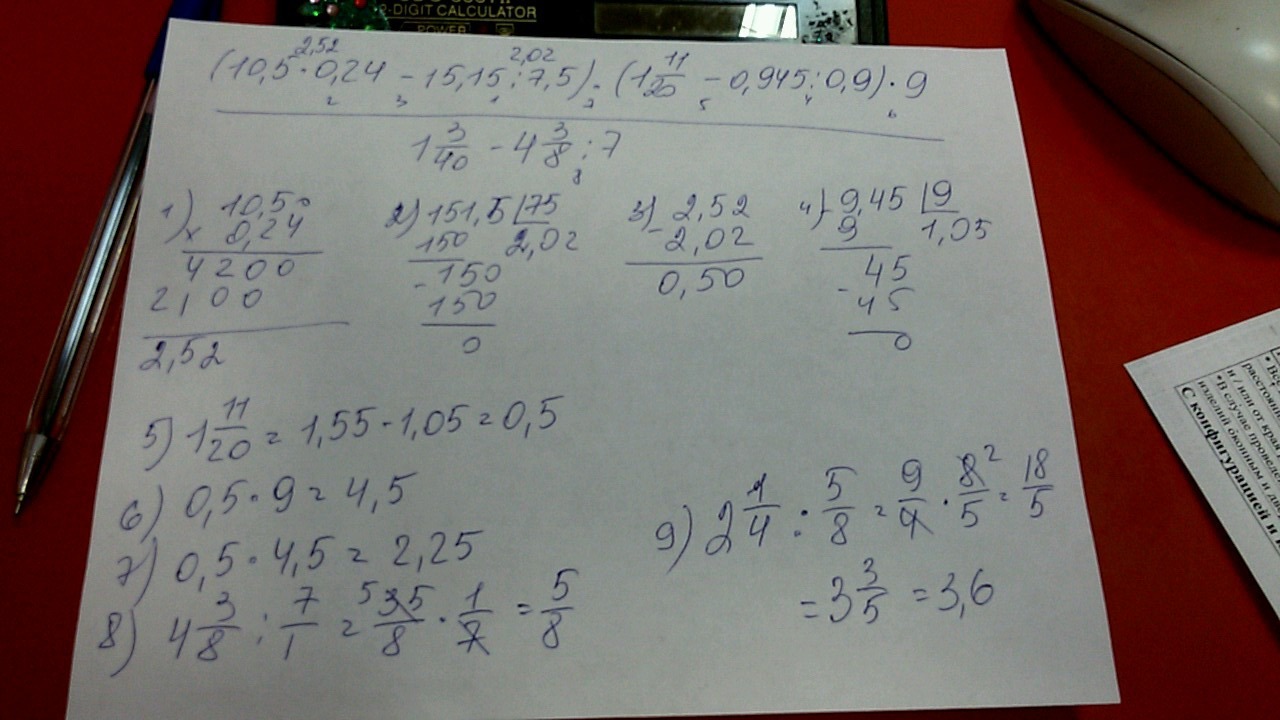 2-DIGIT CALCULATOR
POWER
2,52 2,02
(10,5 · 0,24 - 15,15 : 7,5) · (1 11/20 - 0,945 : 0,9) · 9
2 3 1 7 5 4 6
1 3/40 - 4 3/8 : 7
8
1) 10,50 × 0,24
4200
2100
2,52
2) 151,5 75
150 2,02
-150
150
0
3) 2,52
- 2,02
0,50
4) 9,45 9
9 1,05
45
- 45
0
5) 1 11/20 = 1,55 - 1,05 = 0,5
6) 0,5 · 9 = 4,5
7) 0,5 · 4,5 = 2,25
8) 4 3/8 : 7/1 = 5 35/8 · 1/7 = 5/8
9) 2 1/4 : 5/8 = 9/4 · 8/5 2 = 18/5
= 3 3/5 = 3,6
и / или от края
• В случае
изделий оконным и
С конфигурацией и